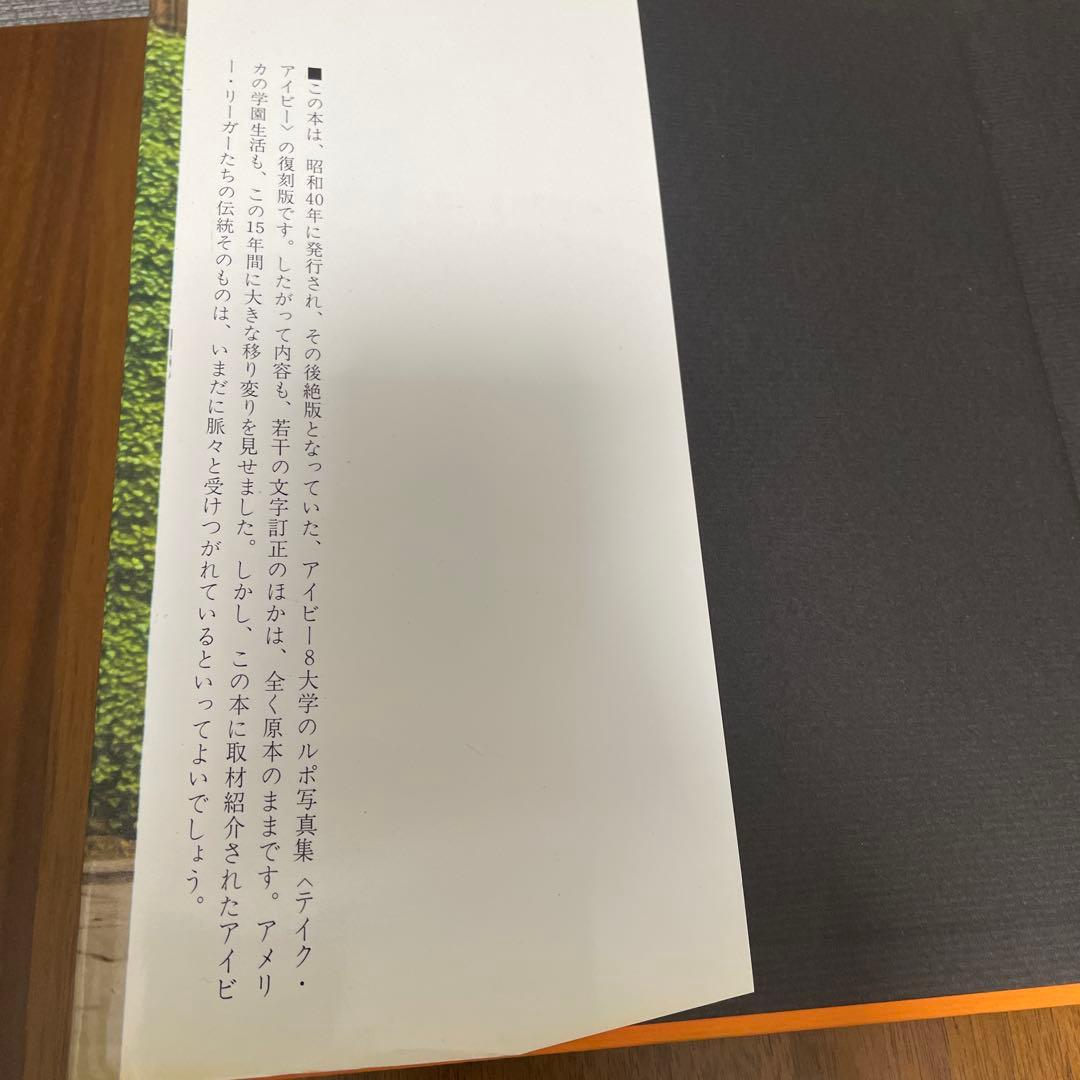 ■この本は、昭和40年に発行され、その後絶版となっていた、アイビー8大学のルポ写真集〈テイク・
アイビー〉の復刻版です。したがって内容も、若干の文字訂正のほかは、全く原本のままです。アメリ
カの学園生活も、この15年間に大きな移り変りを見せました。しかし、この本に取材紹介されたアイビ
ー・リーガーたちの伝統そのものは、いまだに脈々と受けつがれているといってよいでしょう。